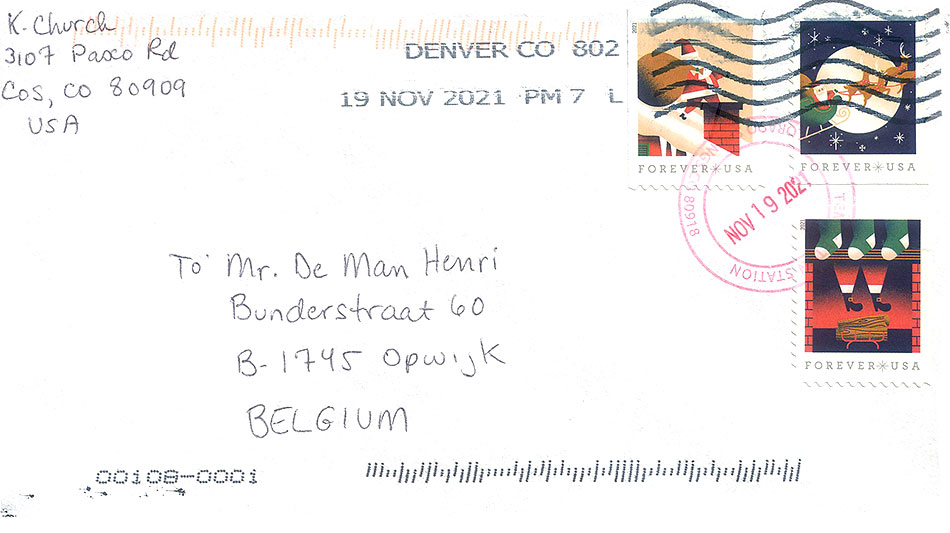 K. Church
3107 Paseo Rd
COS, CO 80909
USA
DENVER CO 802
19 NOV 2021 PM 7 L
2021
FOREVER USA
FOREVER USA
NOV 19 2021
80918
STATION
2021
FOREVER USA
To: Mr. De Man Henri
Bunderstraat 60
B-1745 Opwijk
BELGIUM
00108-0001